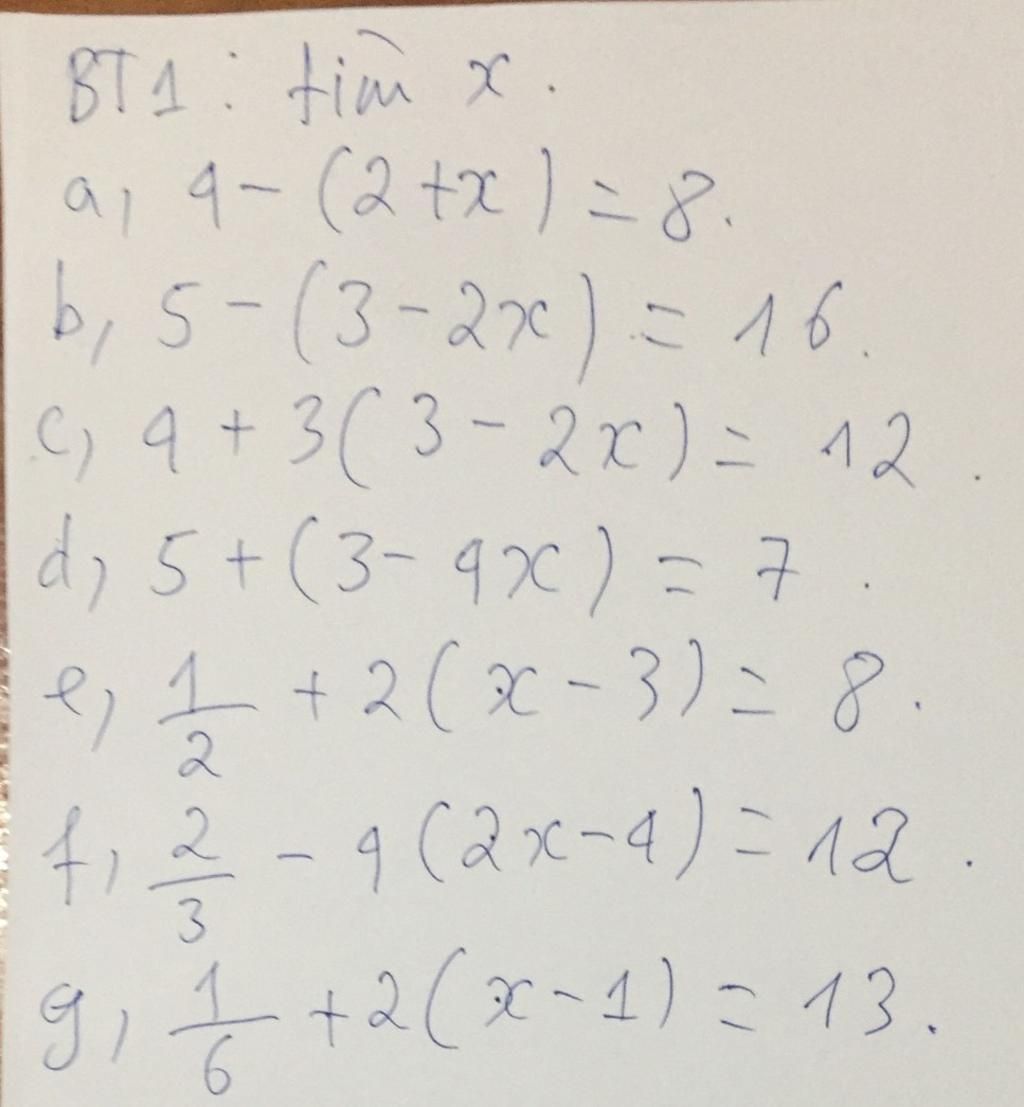 BT1: tìm x.
a, 4 - (2 + x) = 8.
b, 5 - (3 - 2x) = 16.
c, 4 + 3(3 - 2x) = 12.
d, 5 + (3 - 4x) = 7.
e, 1/2 + 2(x - 3) = 8.
f, 2/3 - 4(2x - 4) = 12.
g, 1/6 + 2(x - 1) = 13.